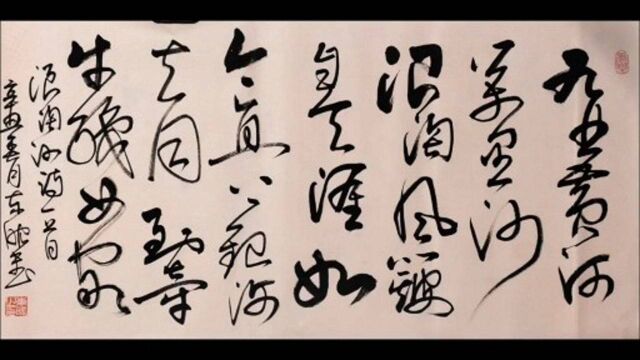 九曲黄河
萬里沙
浪淘風簸
自天涯如
今直上銀河
去同到牽
牛織女家
浪淘沙詩一首
辛丑春月东